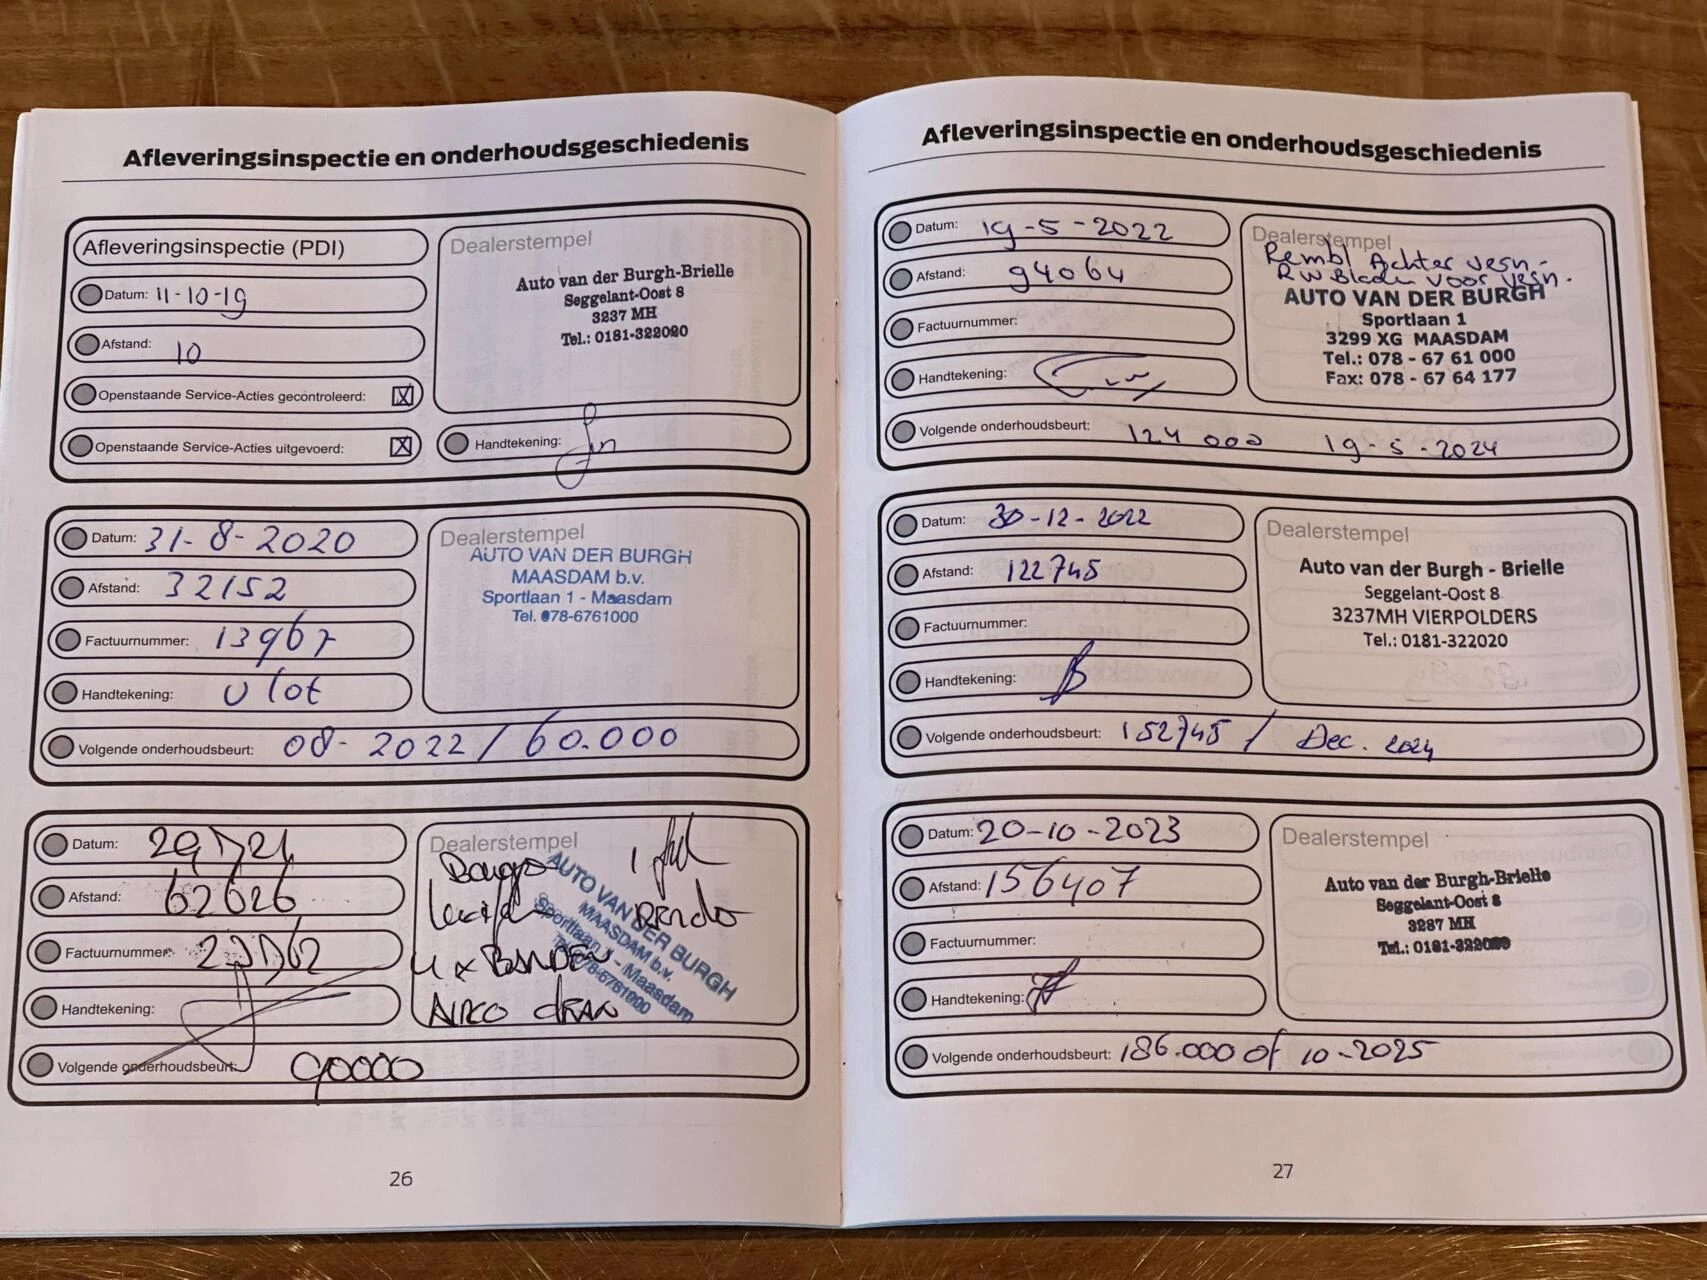 Afleveringsinspectie en onderhoudsgeschiedenis
Afleveringsinspectie (PDI)
Datum: 11-10-19
Afstand: 10
Openstaande Service-Acties gecontroleerd: X
Openstaande Service-Acties uitgevoerd: X
Dealerstempel
Auto van der Burgh-Brielle
Seggelant-Oost 8
3237 MH
Tel.: 0181-322020
Handtekening:
Datum: 31-8-2020
Afstand: 32152
Factuurnummer: 13967
Handtekening:
Dealerstempel
AUTO VAN DER BURGH
MAASDAM b.v.
Sportlaan 1 - Maasdam
Tel. 078-6761000
Volgende onderhoudsbeurt: 08-2022 / 60.000
Datum:
Afstand: 62626
Factuurnummer:
Handtekening:
Dealerstempel
4 x BANDEN
AIRCO
AUTO VAN DER BURGH
MAASDAM b.v.
Sportlaan 1 - Maasdam
Tel. 078-6761000
Volgende onderhoudsbeurt: 90000
26
Afleveringsinspectie en onderhoudsgeschiedenis
Datum: 19-5-2022
Afstand: 94064
Factuurnummer:
Handtekening:
Dealerstempel
Rembl Achter vern-
RW Bladen voor vern.
AUTO VAN DER BURGH
Sportlaan 1
3299 XG MAASDAM
Tel.: 078 - 67 61 000
Fax: 078 - 67 64 177
Volgende onderhoudsbeurt: 124 000 19-5-2024
Datum: 30-12-2022
Afstand: 122745
Factuurnummer:
Handtekening:
Dealerstempel
Auto van der Burgh - Brielle
Seggelant-Oost 8
3237MH VIERPOLDERS
Tel.: 0181-322020
Volgende onderhoudsbeurt: 152745 / Dec. 2024
Datum: 20-10-2023
Afstand: 156407
Factuurnummer:
Handtekening:
Dealerstempel
Auto van der Burgh-Brielle
Seggelant-Oost 8
3237 MH
Tel.: 0181-322020
Volgende onderhoudsbeurt: 186.000 of 10-2025
27